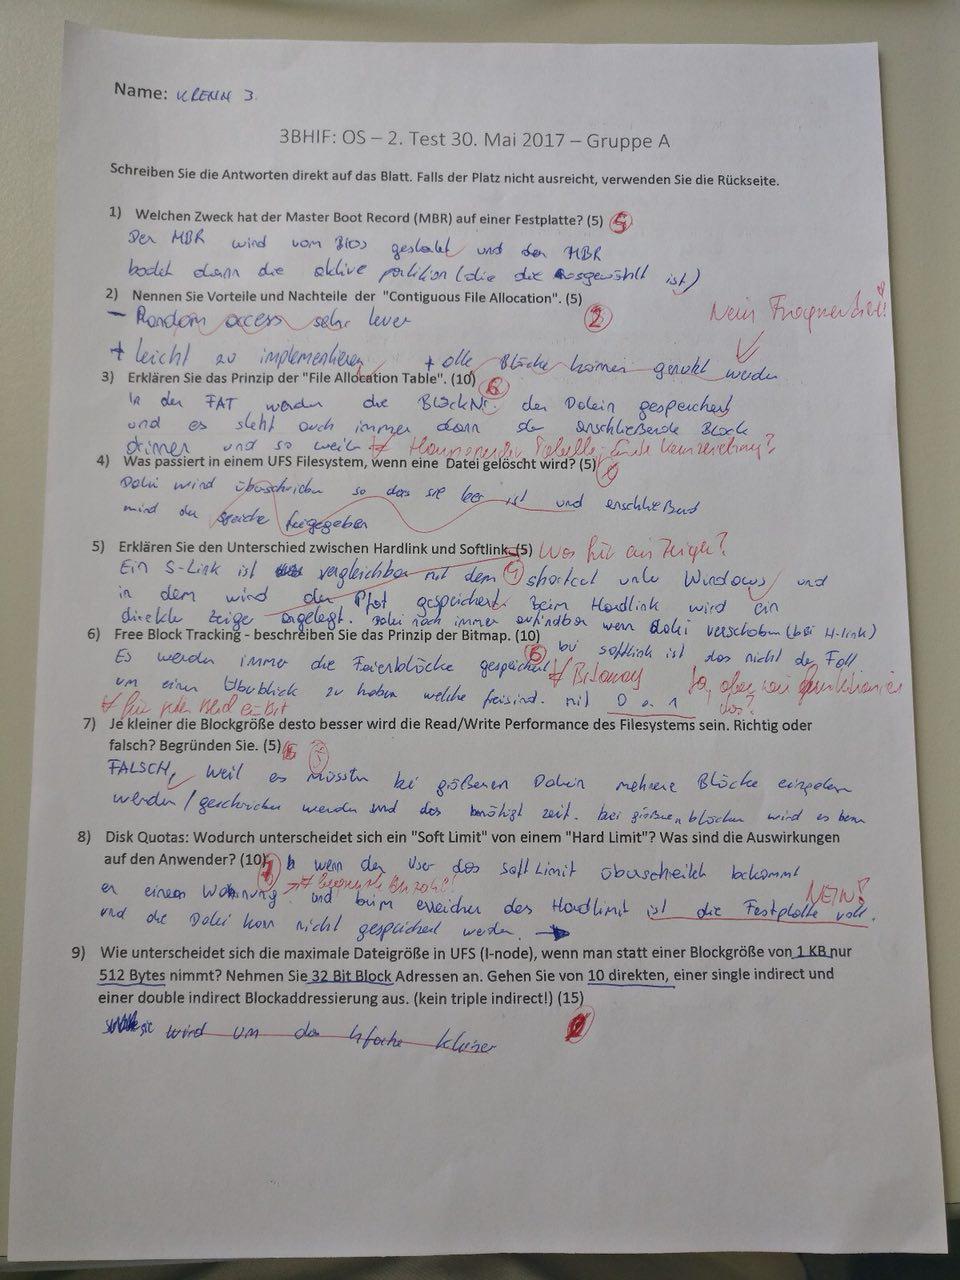 Name: KRENN J.
3BHIF: OS – 2. Test 30. Mai 2017 – Gruppe A
Schreiben Sie die Antworten direkt auf das Blatt. Falls der Platz nicht ausreicht, verwenden Sie die Rückseite.
1) Welchen Zweck hat der Master Boot Record (MBR) auf einer Festplatte? (5) 5
Der MBR wird vom Bios gestartet und der MBR
bootet dann die aktive partition (die die ausgewählt ist)
2) Nennen Sie Vorteile und Nachteile der "Contiguous File Allocation". (5) 2
– Random access sehr
Nein
+ leicht zu implementieren + alle Blöcke können genutzt werden
3) Erklären Sie das Prinzip der "File Allocation Table". (10) 6
In der FAT werden die BlockNr. der Datein gespeichert
und es steht auch immer dann der anschließende Block
drinnen und so weiter
4) Was passiert in einem UFS Filesystem, wenn eine Datei gelöscht wird? (5)
Datei wird überschrieben so das sie leer ist und anschließend
wird der speicher freigegeben
5) Erklären Sie den Unterschied zwischen Hardlink und Softlink. (5) Was für ein Zeiger?
Ein S-Link ist vergleichbar mit dem shortcut unter Windows und
in dem wird der Pfad gespeichert. Beim Hardlink wird ein
direkter Zeiger angelegt. Datei noch immer auffindbar wenn Datei verschoben (bei H-link)
6) Free Block Tracking - beschreiben Sie das Prinzip der Bitmap. (10) bei softlink ist das nicht der Fall
Es werden immer die Blöcke gespeichert
um einen Überblick zu haben welche frei sind. mit 0 o. 1
Ja, aber wie funktioniert das?
7) Je kleiner die Blockgröße desto besser wird die Read/Write Performance des Filesystems sein. Richtig oder
falsch? Begründen Sie. (5)
FALSCH, weil es müssten bei größeren Datein mehrere Blöcke
werden / geschrieben werden und das benötigt zeit. bei größeren blöcken wird es
8) Disk Quotas: Wodurch unterscheidet sich ein "Soft Limit" von einem "Hard Limit"? Was sind die Auswirkungen
auf den Anwender? (10) wenn der User das soft Limit überschreitet bekommt
er einen Warnung und beim erreichen des Hardlimit ist die Festplatte voll.
NEIN!
und die Datei kann nicht gespeichert werden.
9) Wie unterscheidet sich die maximale Dateigröße in UFS (I-node), wenn man statt einer Blockgröße von 1 KB nur
512 Bytes nimmt? Nehmen Sie 32 Bit Block Adressen an. Gehen Sie von 10 direkten, einer single indirect und
einer double indirect Blockaddressierung aus. (kein triple indirect!) (15)
sie wird um das kleiner